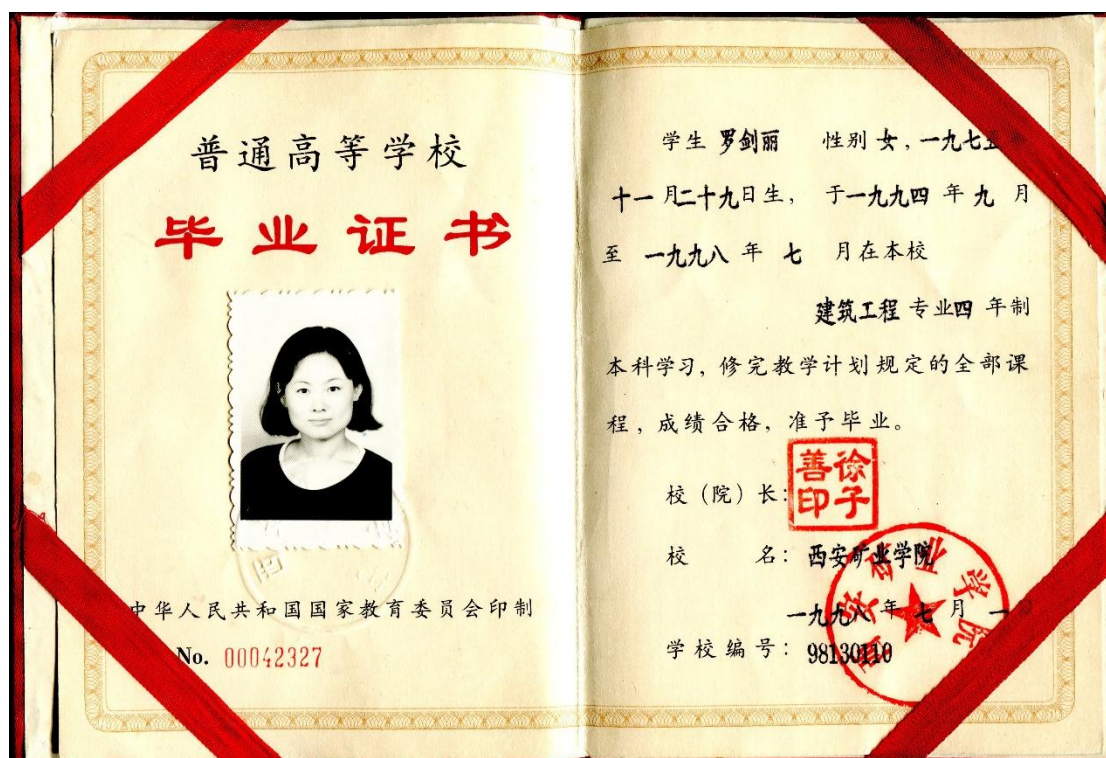 普通高等学校
毕业证书
中华人民共和国国家教育委员会印制
No. 00042327
学生 罗剑丽 性别 女，一九七五
十一月二十九日生， 于一九九四 年 九 月
至 一九九八 年 七 月在本校
建筑工程 专业四 年制
本科学习，修完教学计划规定的全部课
程，成绩合格，准予毕业。
校（院）长：
徐子善印
校 名：西安矿业学院
西安矿业学院
一九九八 年 七 月 一
学校编号：98130110